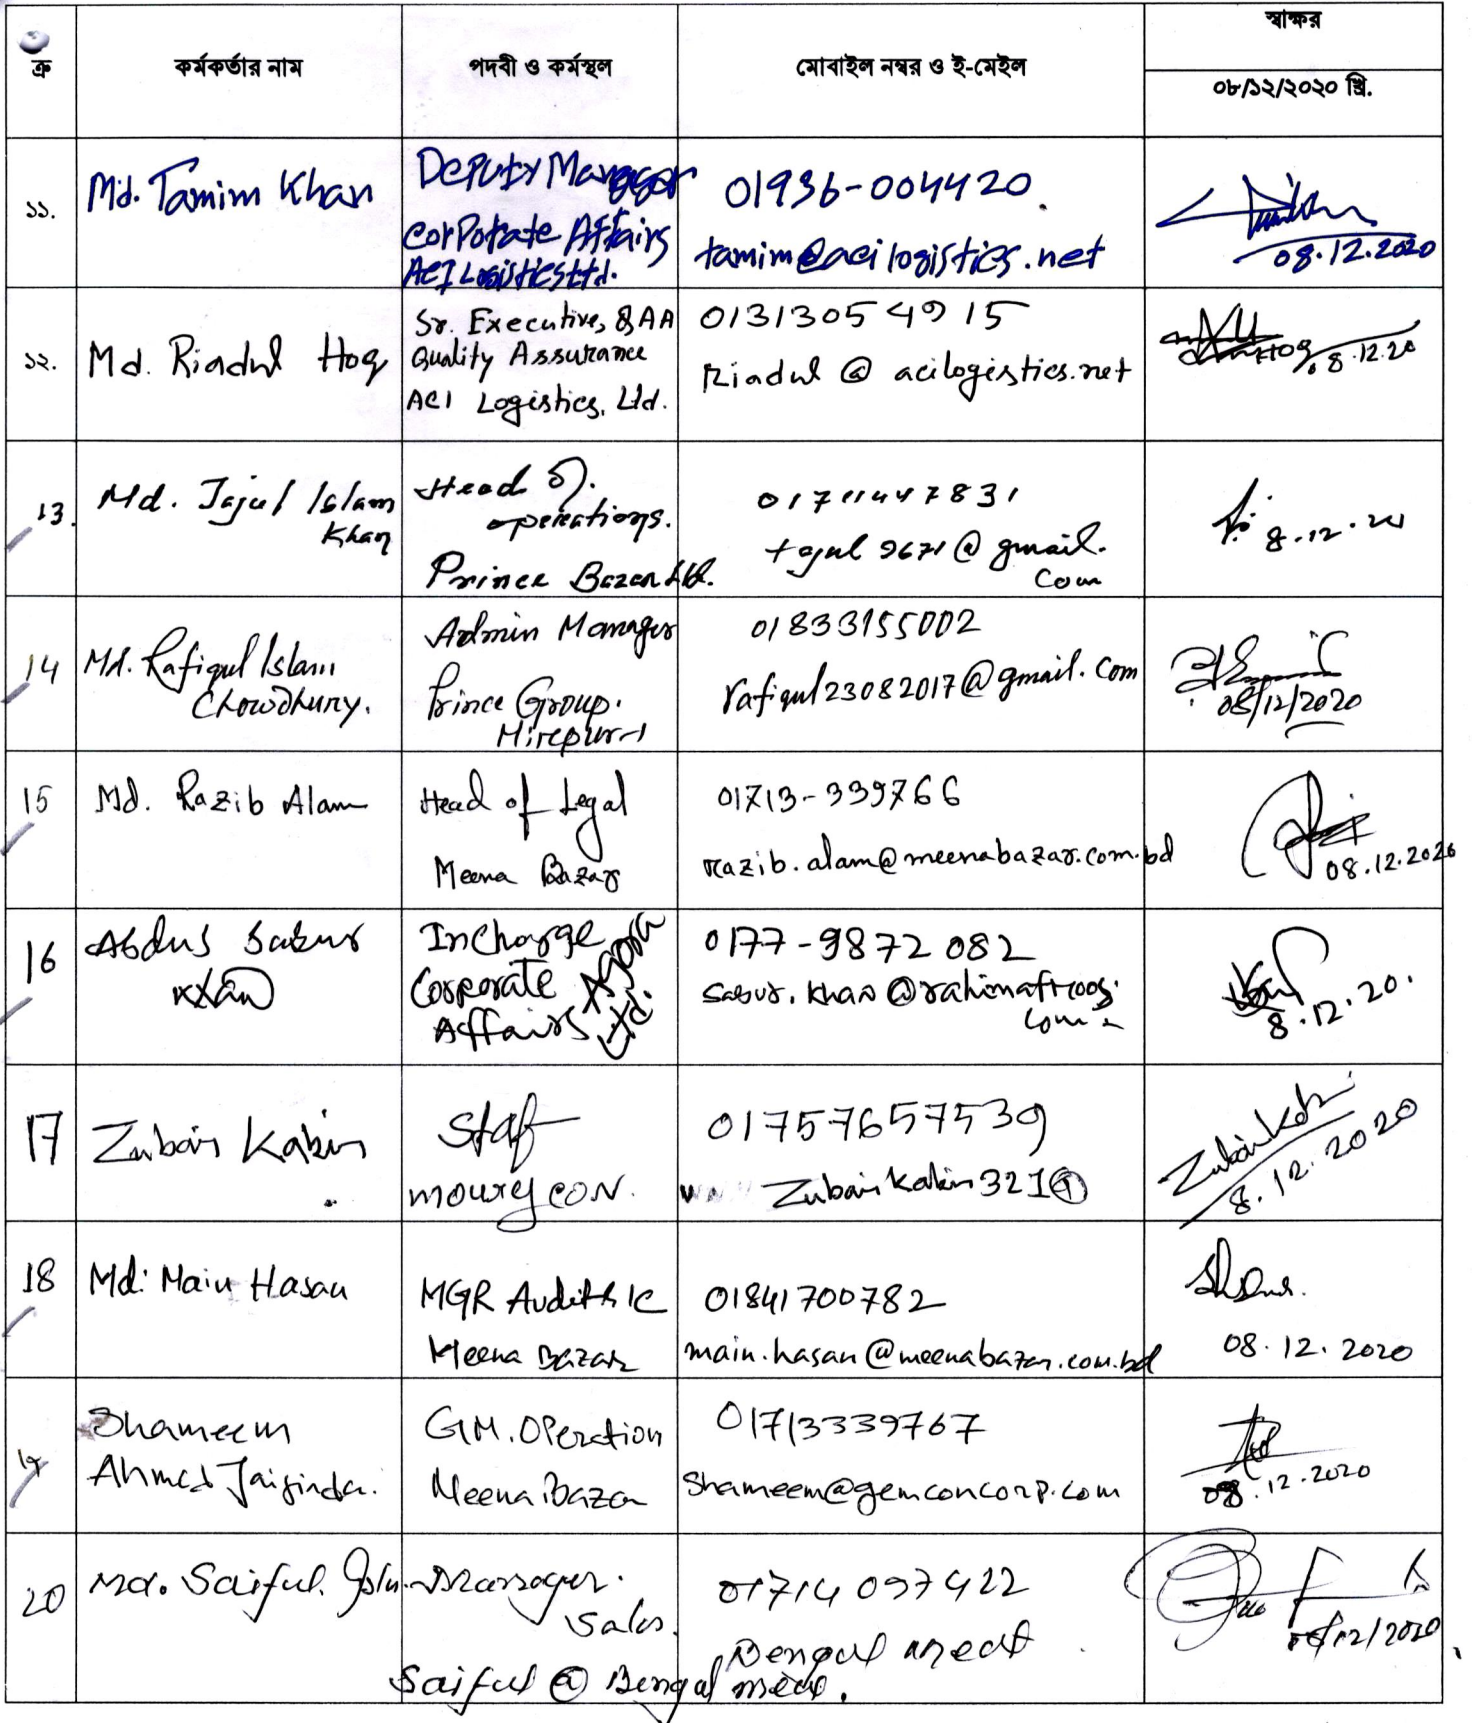 ক্র
কর্মকর্তার নাম
পদবী ও কর্মস্থল
মোবাইল নম্বর ও ই-মেইল
স্বাক্ষর
০৮/১২/২০২০ খ্রি.
১১.
Md. Tamim Khan
Deputy Manager
Corporate Affairs
ACI Logistics Ltd.
01936-004420
tamim@acilogistics.net
08.12.2020
১২.
Md. Riadul Hoq
Sr. Executive, QAA
Quality Assurance
ACI Logistics, Ltd.
01313054915
Riadul @ acilogistics.net
8.12.20
13.
Md. Tajul Islam
Khan
Head of.
operations.
Prince Bazar Ltd.
01711447831
tajul 9671 @ gmail.
Com
8.12.20
14
Md. Rafiqul Islam
Chowdhury.
Admin Manager
Prince Group.
Mirepur-1
01833155002
rafiqul23082017@gmail.com
08/12/2020
15
Md. Razib Alam
Head of Legal
Meena Bazar
01713-339766
razib.alam@meenabazar.com.bd
08.12.2020
16
Abdus Sabur
Khan
Incharge
Corporate
Affairs
Agora
Ltd.
0177-9872082
Sabur.Khan@rahimafrooz.
com
8.12.20.
17
Zubair Kabir
Staf
01757657539
Zubair Kabir 321@
Zubair Kabir
8.12.2020
18
Md. Main Hasan
MGR Audit & IC
Meena Bazar
01841700782
main.hasan@meenabazar.com.bd
08.12.2020
19
Shameem
Ahmed Jaigirdar.
GM. Operation
Meena Bazar
01713339767
Shameem@gemconcorp.com
08.12.2020
20
Md. Saiful Islam
Manager.
Sales.
01714097422
Bengal Meat
Saiful @ Bengal meat.
08/12/2020